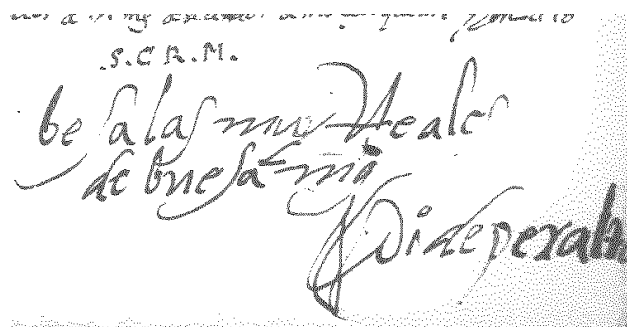 S.C.R.M.
besa las muy Reales
de buesa mã
Di de peralta